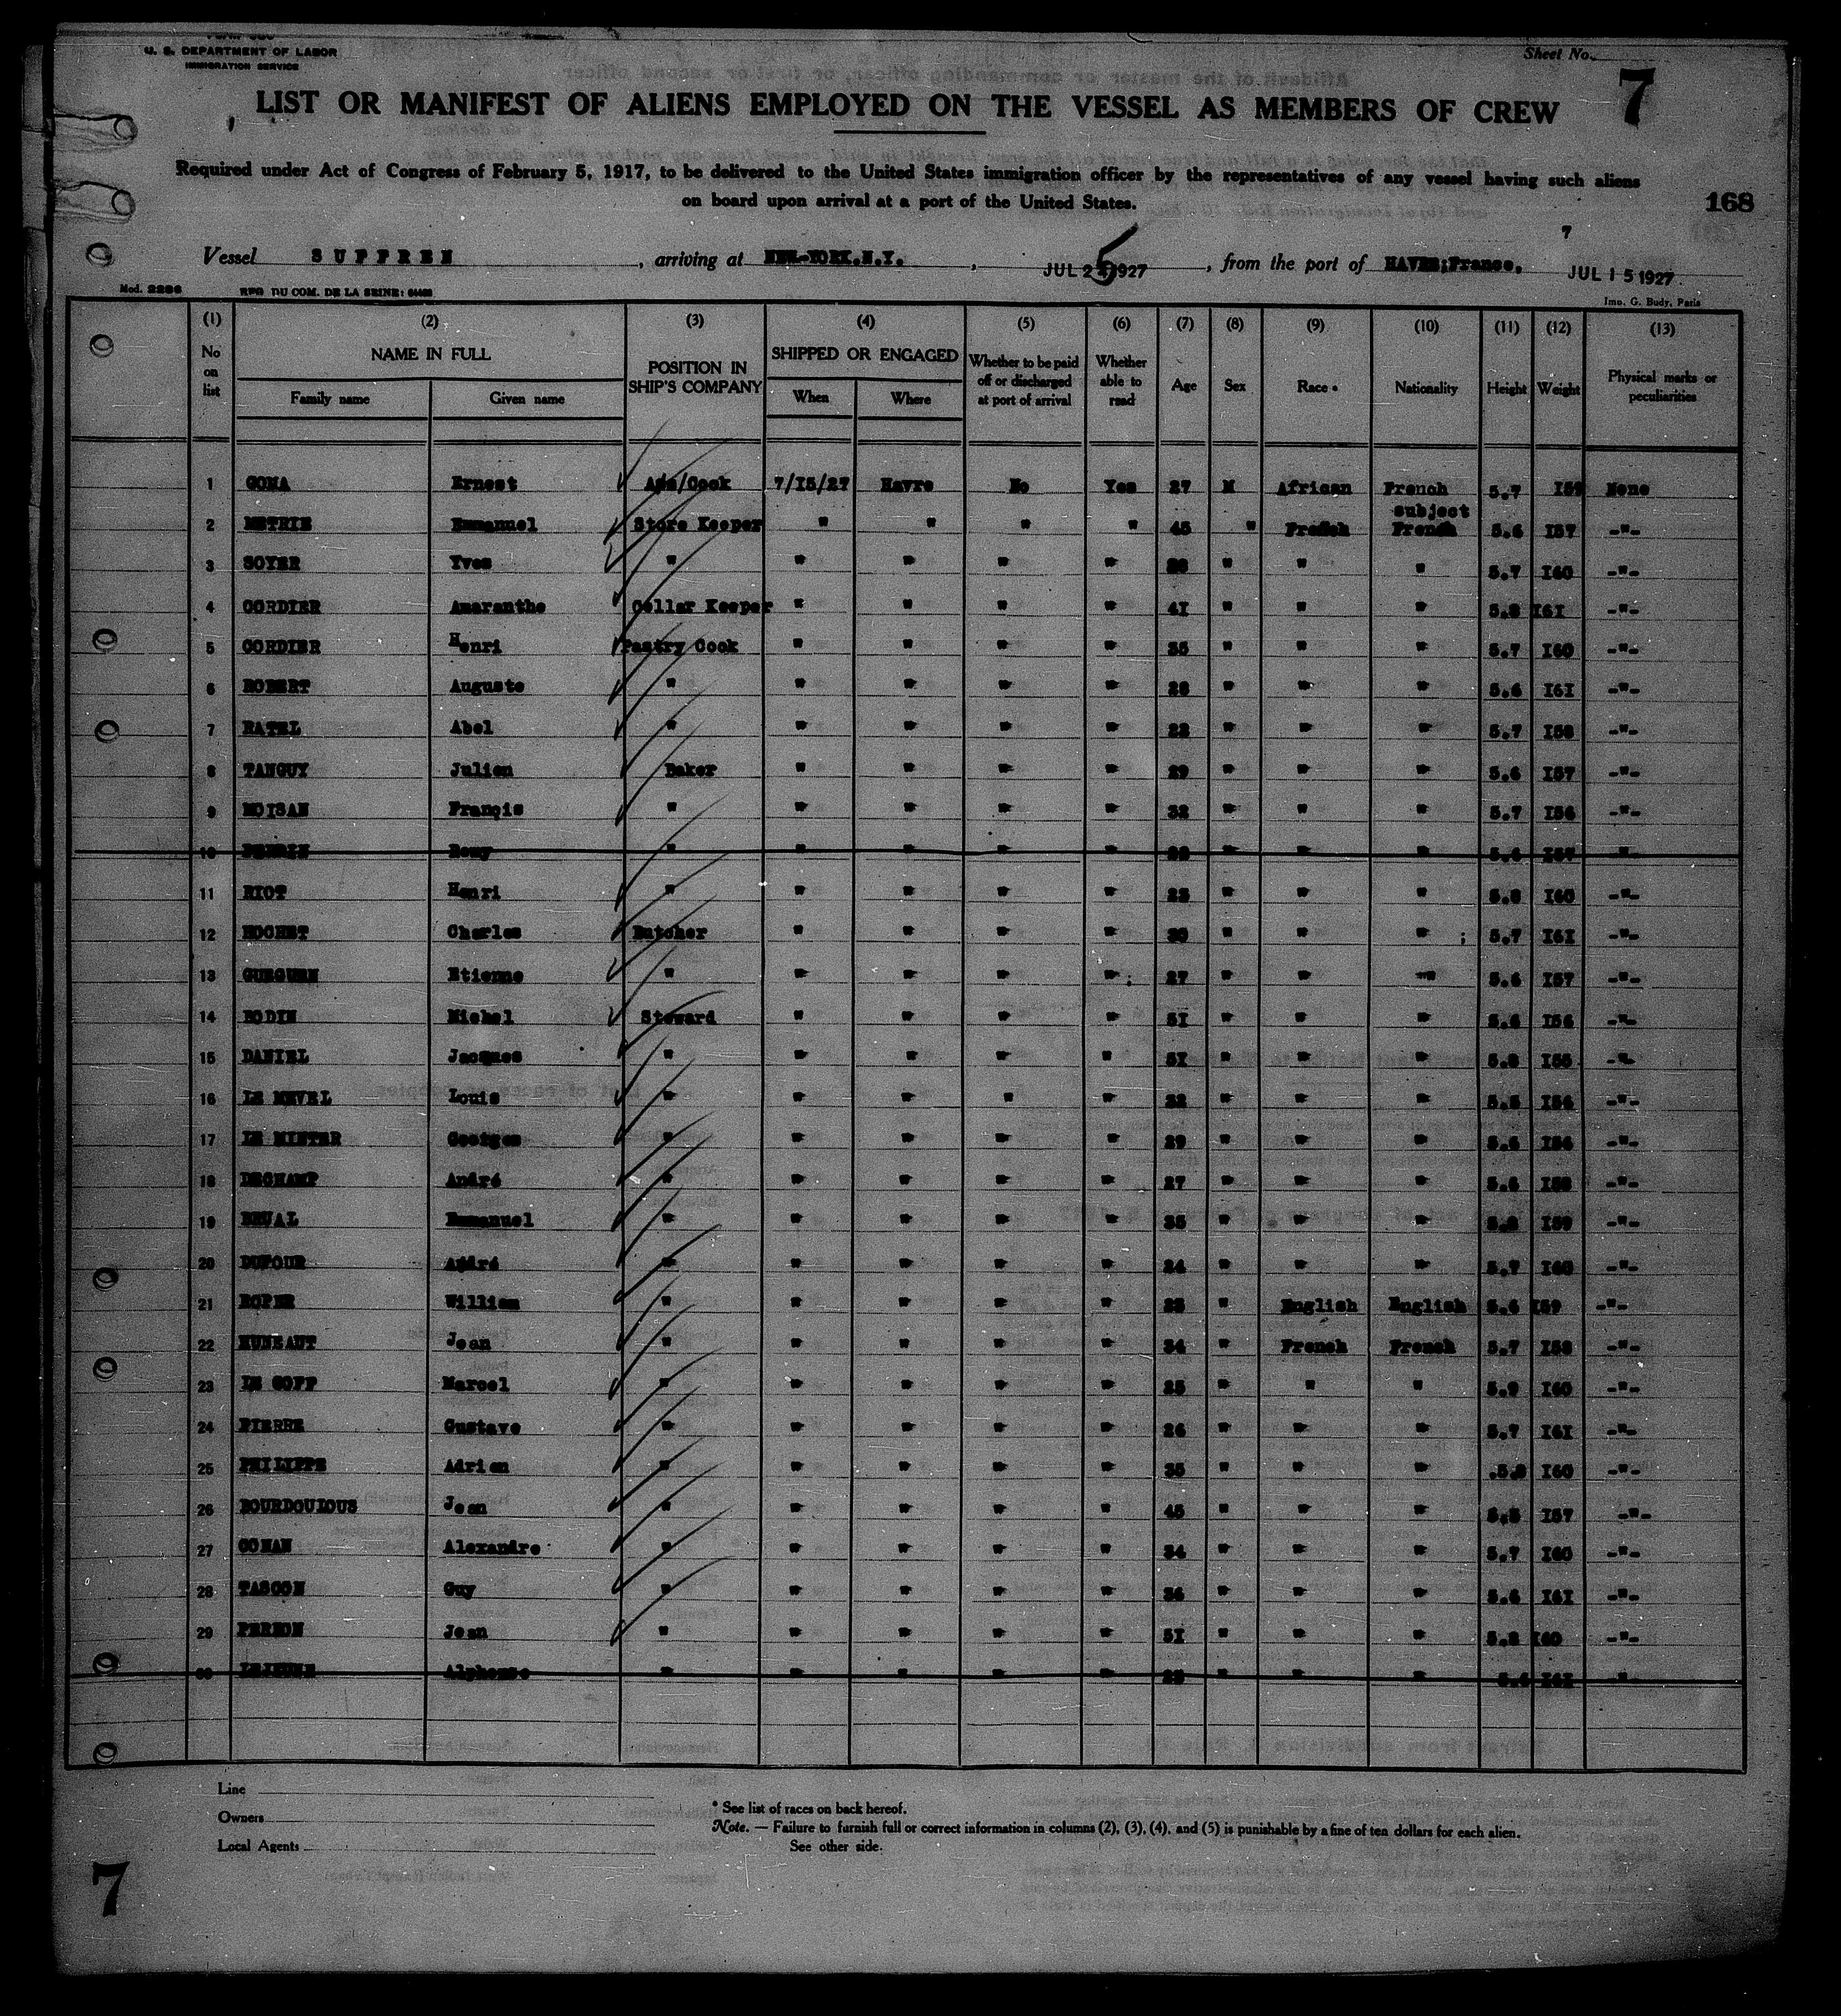 U. S. DEPARTMENT OF LABOR
IMMIGRATION SERVICE
Sheet No.
7
LIST OR MANIFEST OF ALIENS EMPLOYED ON THE VESSEL AS MEMBERS OF CREW
Required under Act of Congress of February 5, 1917, to be delivered to the United States immigration officer by the representatives of any vessel having such aliens
on board upon arrival at a port of the United States.
168
7
Vessel SUFFREN, arriving at NEW-YORK.N.Y., JUL 25 1927, from the port of HAVRE;France. JUL 15 1927
Mod. 2286 REG. DU COM. DE LA SEINE: Imp. G. Budy, Paris
(1) (2) (3) (4) (5) (6) (7) (8) (9) (10) (11) (12) (13)
No on list NAME IN FULL POSITION IN SHIP'S COMPANY SHIPPED OR ENGAGED Whether to be paid off or discharged at port of arrival Whether able to read Age Sex Race * Nationality Height Weight Physical marks or peculiarities
Family name Given name When Where
1 GOMA Ernest Ass/Cook 7/15/27 Havre No Yes 27 M African French subject 5.7 159 None
2 Emmanuel Store Keeper " " " " 45 " French French 5.6 157 -"-
3 SOYER Yves " " " " " " " " 5.7 160 -"-
4 CORDIER Amaranthe Cellar Keeper " " " " 41 " " " 5.8 161 -"-
5 CORDIER Henri Pastry Cook " " " " 35 " " " 5.7 160 -"-
6 ROBERT Auguste " " " " " 28 " " " 5.6 161 -"-
7 RATEL Abel " " " " " 22 " " " 5.7 158 -"-
8 TANGUY Julien Baker " " " " 29 " " " 5.6 157 -"-
9 MOISAN Françis " " " " " 32 " " " 5.7 156 -"-
10 Remy " " " " " " " " 5.6 157 -"-
11 RIOT Henri " " " " " 23 " " " 5.8 160 -"-
12 HOCHET Charles Butcher " " " " 30 " " " 5.7 161 -"-
13 GUEGUEN Etienne " " " " " 27 " " " 5.6 157 -"-
14 BODIN Michel Steward " " " " 51 " " " 5.6 156 -"-
15 DANIEL Jacques " " " " " 51 " " " 5.8 155 -"-
16 LE MEVEL Louis " " " " " 32 " " " 5.5 156 -"-
17 LE MINTER Georges " " " " " 29 " " " 5.6 156 -"-
18 DECHAMP André " " " " " 27 " " " 5.6 158 -"-
19 Emmanuel " " " " " 35 " " " 5.8 159 -"-
20 DUFOUR André " " " " " 24 " " " 5.7 160 -"-
21 ROPER William " " " " " 23 " English English 5.6 159 -"-
22 HUNEAUT Jean " " " " " 34 " French French 5.7 158 -"-
23 LE GOFF Marcel " " " " " 25 " " " 5.9 160 -"-
24 PIERRE Gustave " " " " " 26 " " " 5.7 161 -"-
25 PHILIPPE Adrien " " " " " 35 " " " 5.8 160 -"-
26 BOURDOULOUS Jean " " " " " 45 " " " 5.5 157 -"-
27 CONAN Alexandre " " " " " 34 " " " 5.7 160 -"-
28 TASCON Guy " " " " " 36 " " " 5.6 161 -"-
29 PERRON Jean " " " " " 51 " " " 5.8 160 -"-
30 LEJEUNE Alphonse " " " " " 25 " " " 5.6 161 "
Line
Owners
Local Agents
* See list of races on back hereof.
Note. — Failure to furnish full or correct information in columns (2), (3), (4), and (5) is punishable by a fine of ten dollars for each alien.
See other side.
7